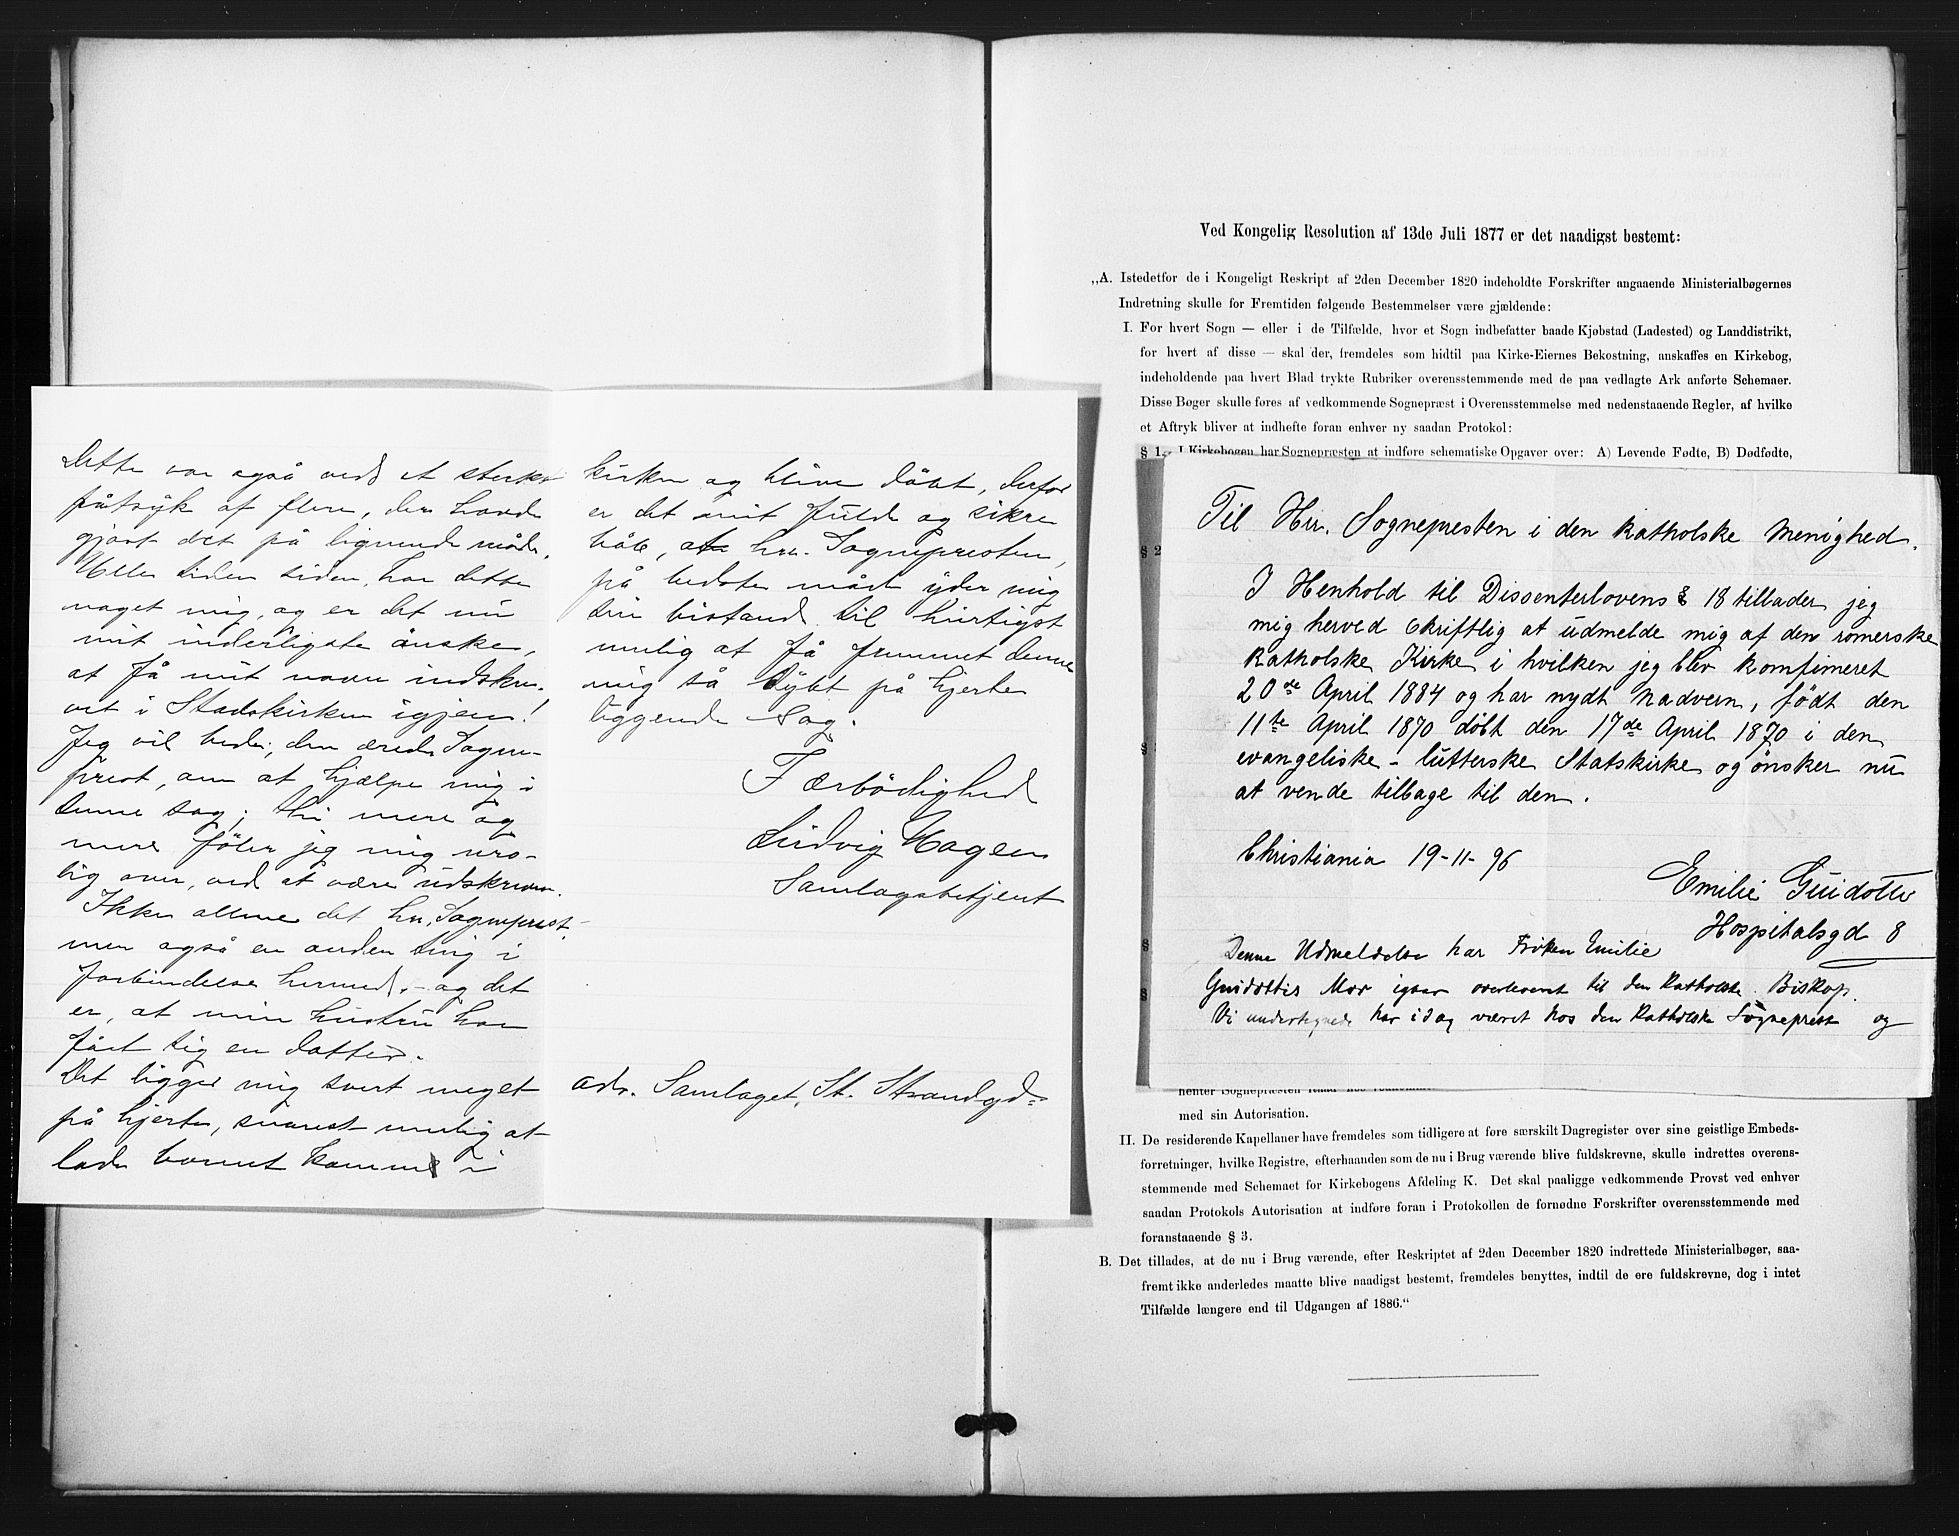 Dette var også ved et sterkt
påtryk af flere, der havde
gjort det på lignende måde.
Alle tiden siden, har dette
naget mig, og er det nu
mit inderligste ånske,
at få mit navn indskre-
vet i Stadskirken igjen!
Jeg vil bede, den ærede Sogne-
prest, om at hjælpe mig i
denne sag; thi mere og
mere föler jeg mig uro-
lig over, ved at være udskreven.
Ikke allene det hr. Sogneprest,
men også en anden ting i
forbindelse hermed, – og det
er, at min hustru har
fået sig en datter.
Det ligger mig svert meget
på hjerte, snarest mulig at
lade barnet komme i
kirken og blive döbt, derfor
er det mit fulde og sikre
håb, at hr. Sognepresten,
på bedste måde yder mig
sin bistand til hurtigst
mulig at få fremmet denne
mig så dybt på hjerte
liggende sag.
Færbödighed
Ludvig Hagen
Samlagsbetjent
adr. Samlaget, St. Strandgd.
Ved Kongelig Resolution af 13de Juli 1877 er det naadigst bestemt:
„A. Istedetfor de i Kongeligt Reskript af 2den December 1820 indeholdte Forskrifter angaaende Ministerialbøgernes
Indretning skulle for Fremtiden følgende Bestemmelser være gjældende:
I. For hvert Sogn — eller i de Tilfælde, hvor et Sogn indbefatter baade Kjøbstad (Ladested) og Landdistrikt,
for hvert af disse — skal der, fremdeles som hidtil paa Kirke-Eiernes Bekostning, anskaffes en Kirkebog,
indeholdende paa hvert Blad trykte Rubriker overensstemmende med de paa vedlagte Ark anførte Schemaer.
Disse Bøger skulle føres af vedkommende Sognepræst i Overensstemmelse med nedenstaaende Regler, af hvilke
et Aftryk bliver at indhefte foran enhver ny saadan Protokol:
§ 1. I Kirkebogen har Sognepræsten at indføre schematiske Opgaver over: A) Levende Fødte, B) Dødfødte,
§ 2
Til Hrr. Sognepresten i den katholske Menighed.
I Henhold til Dissenterlovens § 18 tillader jeg
mig herved skriftlig at udmelde mig af den romerske
katholske Kirke i hvilken jeg blev komfimeret
20de April 1884 og har nydt nadvern, födt den
11te April 1870 döbt den 17de April 1870 i den
evangeliske - lutterske Statskirke og önsker nu
at vende tilbage til den.
Christiania 19-11-96
Emilie Guidotti
Hospitalsgd 8
Denne Udmeldelse har Fröken Emilie
Guidottis Mor igaar overleveret til den Katholske Biskop.
Vi undertegnede har idag været hos den Katholske Sogneprest og
nenter Sognepræsten
med sin Autorisation.
II. De residerende Kapellaner have fremdeles som tidligere at føre særskilt Dagregister over sine geistlige Embeds-
forretninger, hvilke Registre, efterhaanden som de nu i Brug værende blive fuldskrevne, skulle indrettes overens-
stemmende med Schemaet for Kirkebogens Afdeling K. Det skal paaligge vedkommende Provst ved enhver
saadan Protokols Autorisation at indføre foran i Protokollen de fornødne Forskrifter overensstemmende med
foranstaaende § 3.
B. Det tillades, at de nu i Brug værende, efter Reskriptet af 2den December 1820 indrettede Ministerialbøger, saa-
fremt ikke anderledes maatte blive naadigst bestemt, fremdeles benyttes, indtil de ere fuldskrevne, dog i intet
Tilfælde længere end til Udgangen af 1886.“